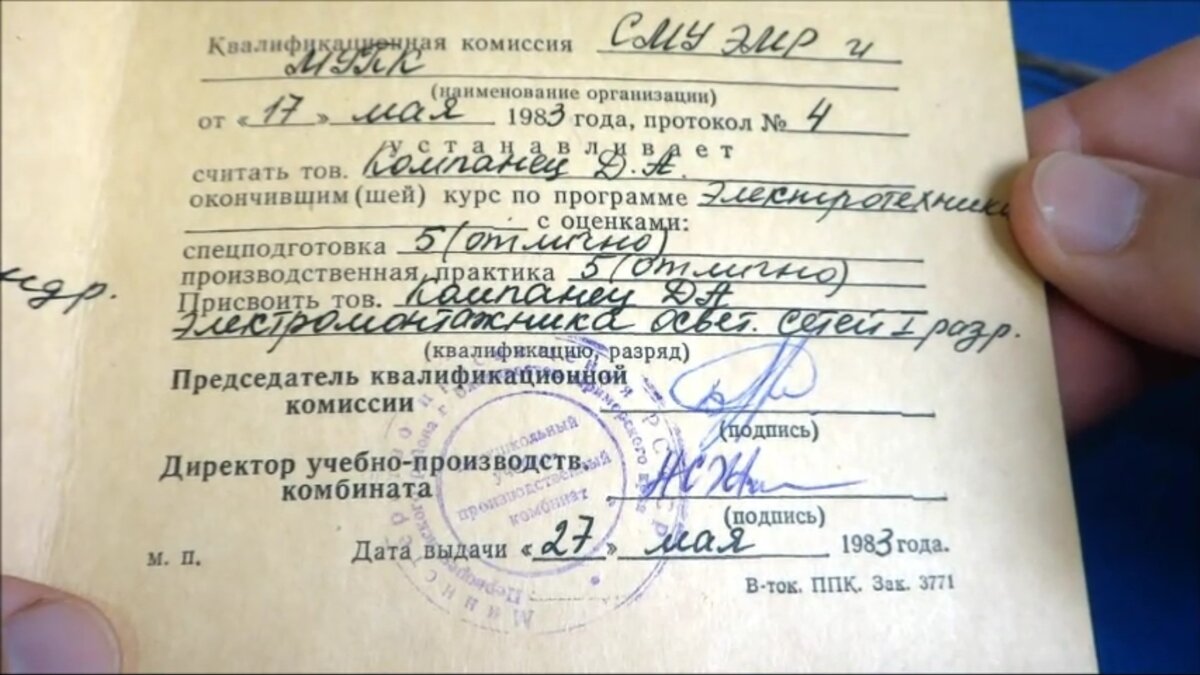 Квалификационная комиссия СМУ ЭМР и
МУПК
(наименование организации)
от «17» мая 1983 года, протокол № 4
устанавливает
считать тов. Компанец Д.А.
окончившим (шей) курс по программе Электротехники
с оценками:
спецподготовка 5 (отлично)
производственная практика 5 (отлично)
ндр.
Присвоить тов. Компанец ДА
Электромонтажника освет. сетей I разр.
(квалификацию, разряд)
Председатель квалификационной
комиссии
(подпись)
Директор учебно-производств.
комбината
(подпись)
м. п.
Дата выдачи «27» мая 1983 года.
В-ток. ППК. Зак. 3771
учебно-
производственный
комбинат
Приморского края